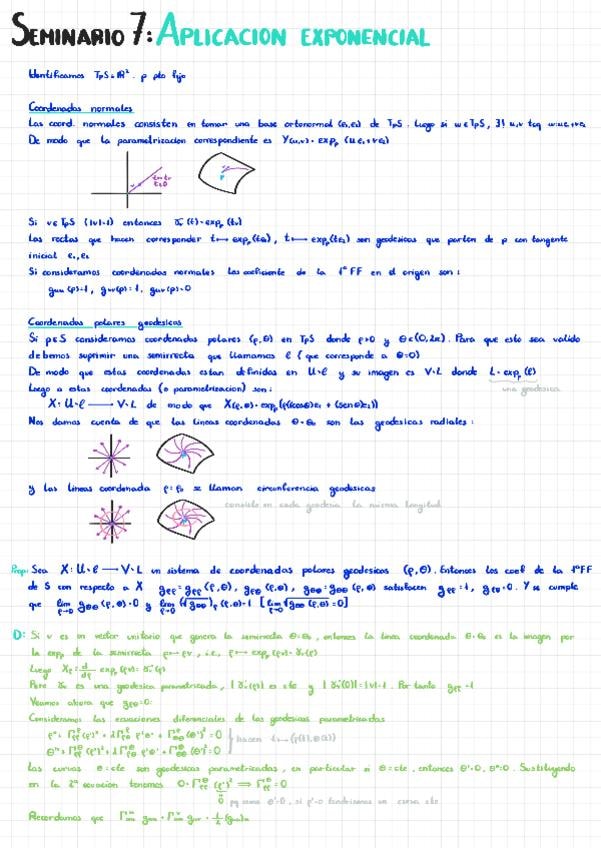 SEMINARIO 7: APLICACION EXPONENCIAL
Identificamos TₚS ≅ ℝ². p pto fijo
Coordenadas normales
Las coord. normales consisten en tomar una base ortonormal (e₁,e₂) de TₚS. Luego si w∈TₚS, ∃! u,v tq w=ue₁+ve₂
De modo que la parametrizacion correspondiente es Y(u,v) = expₚ (ue₁+ve₂)
Si v∈TₚS (|v|=1) entonces γᵥ(t) = expₚ(tv)
Las rectas que hacen corresponder t↦expₚ(te₁), t↦expₚ(te₂) son geodesicas que parten de p con tangente
inicial e₁,e₂
Si consideramos coordenadas normales los coeficiente de la 1ª FF en el origen son:
gᵤᵤ(p)=1, gᵥᵥ(p)=1, gᵤᵥ(p)=0
Coordenadas polares geodesicas
Si p∈S consideramos coordenadas polares (ρ,θ) en TₚS donde ρ>0 y θ∈(0,2π). Para que esto sea valido
debemos suprimir una semirrecta que llamamos ℓ (que corresponde a θ=0)
De modo que estas coordenadas estan definidas en U∖ℓ y su imagen es V∖L donde L=expₚ(ℓ)
una geodesica
Luego a estas coordenadas (o parametrizacion) son:
X: U∖ℓ → V∖L de modo que X(ρ,θ) = expₚ(ρ((cosθ)e₁ + (senθ)e₂))
Nos damos cuenta de que las lineas coordenadas θ=θ₀ son las geodesicas radiales:
y las lineas coordenada ρ=ρ₀ se llaman circunferencia geodesicas
consiste en cada geodesia la misma longitud
Prop: Sea X: U∖ℓ → V∖L un sistema de coordenadas polares geodesicas (ρ,θ). Entonces los coef de la 1ªFF
de S con respecto a X gρρ=gρρ(ρ,θ), gρθ(ρ,θ), gθθ=gθθ(ρ,θ) satisfacen gρρ=1, gρθ=0. Y se cumple
que lim ρ→0 gθθ(ρ,θ)=0 y lim ρ→0 (√gθθ)ρ(ρ,θ)=1 [lim ρ→0 √gθθ(ρ,θ)=0]
D: Si v es un vector unitario que genera la semirrecta θ=θ₀, entonces la linea coordenada θ=θ₀ es la imagen por
la expₚ de la semirrecta ρ↦ρv, i.e., ρ↦expₚ(ρv)=γᵥ(ρ)
Luego Xρ = d/dρ expₚ(ρv) = γᵥ'(ρ)
Pero γᵥ es una geodesica parametrizada, |γᵥ'(ρ)| es cte y |γᵥ'(0)|=|v|=1. Por tanto gρρ=1
Veamos ahora que gρθ=0:
Consideramos las ecuaciones diferenciales de las geodesicas parametrizadas
ρ''+Γρρ^ρ(ρ')²+2Γρθ^ρ ρ'θ'+Γθθ^ρ(θ')²=0
hacen t↦(ρ(t),θ(t))
θ''+Γρρ^θ(ρ')²+2Γρθ^θ ρ'θ'+Γθθ^θ(θ')²=0
Las curvas θ=cte son geodesicas parametrizadas, en particular si θ=cte, entonces θ'=0, θ''=0. Sustituyendo
en la 2ª ecuacion tenemos 0=Γρρ^θ(ρ')² ⟹ Γρρ^θ=0
0 pq como θ'=0, si ρ'=0 tendriamos un curva cte
Recordamos que